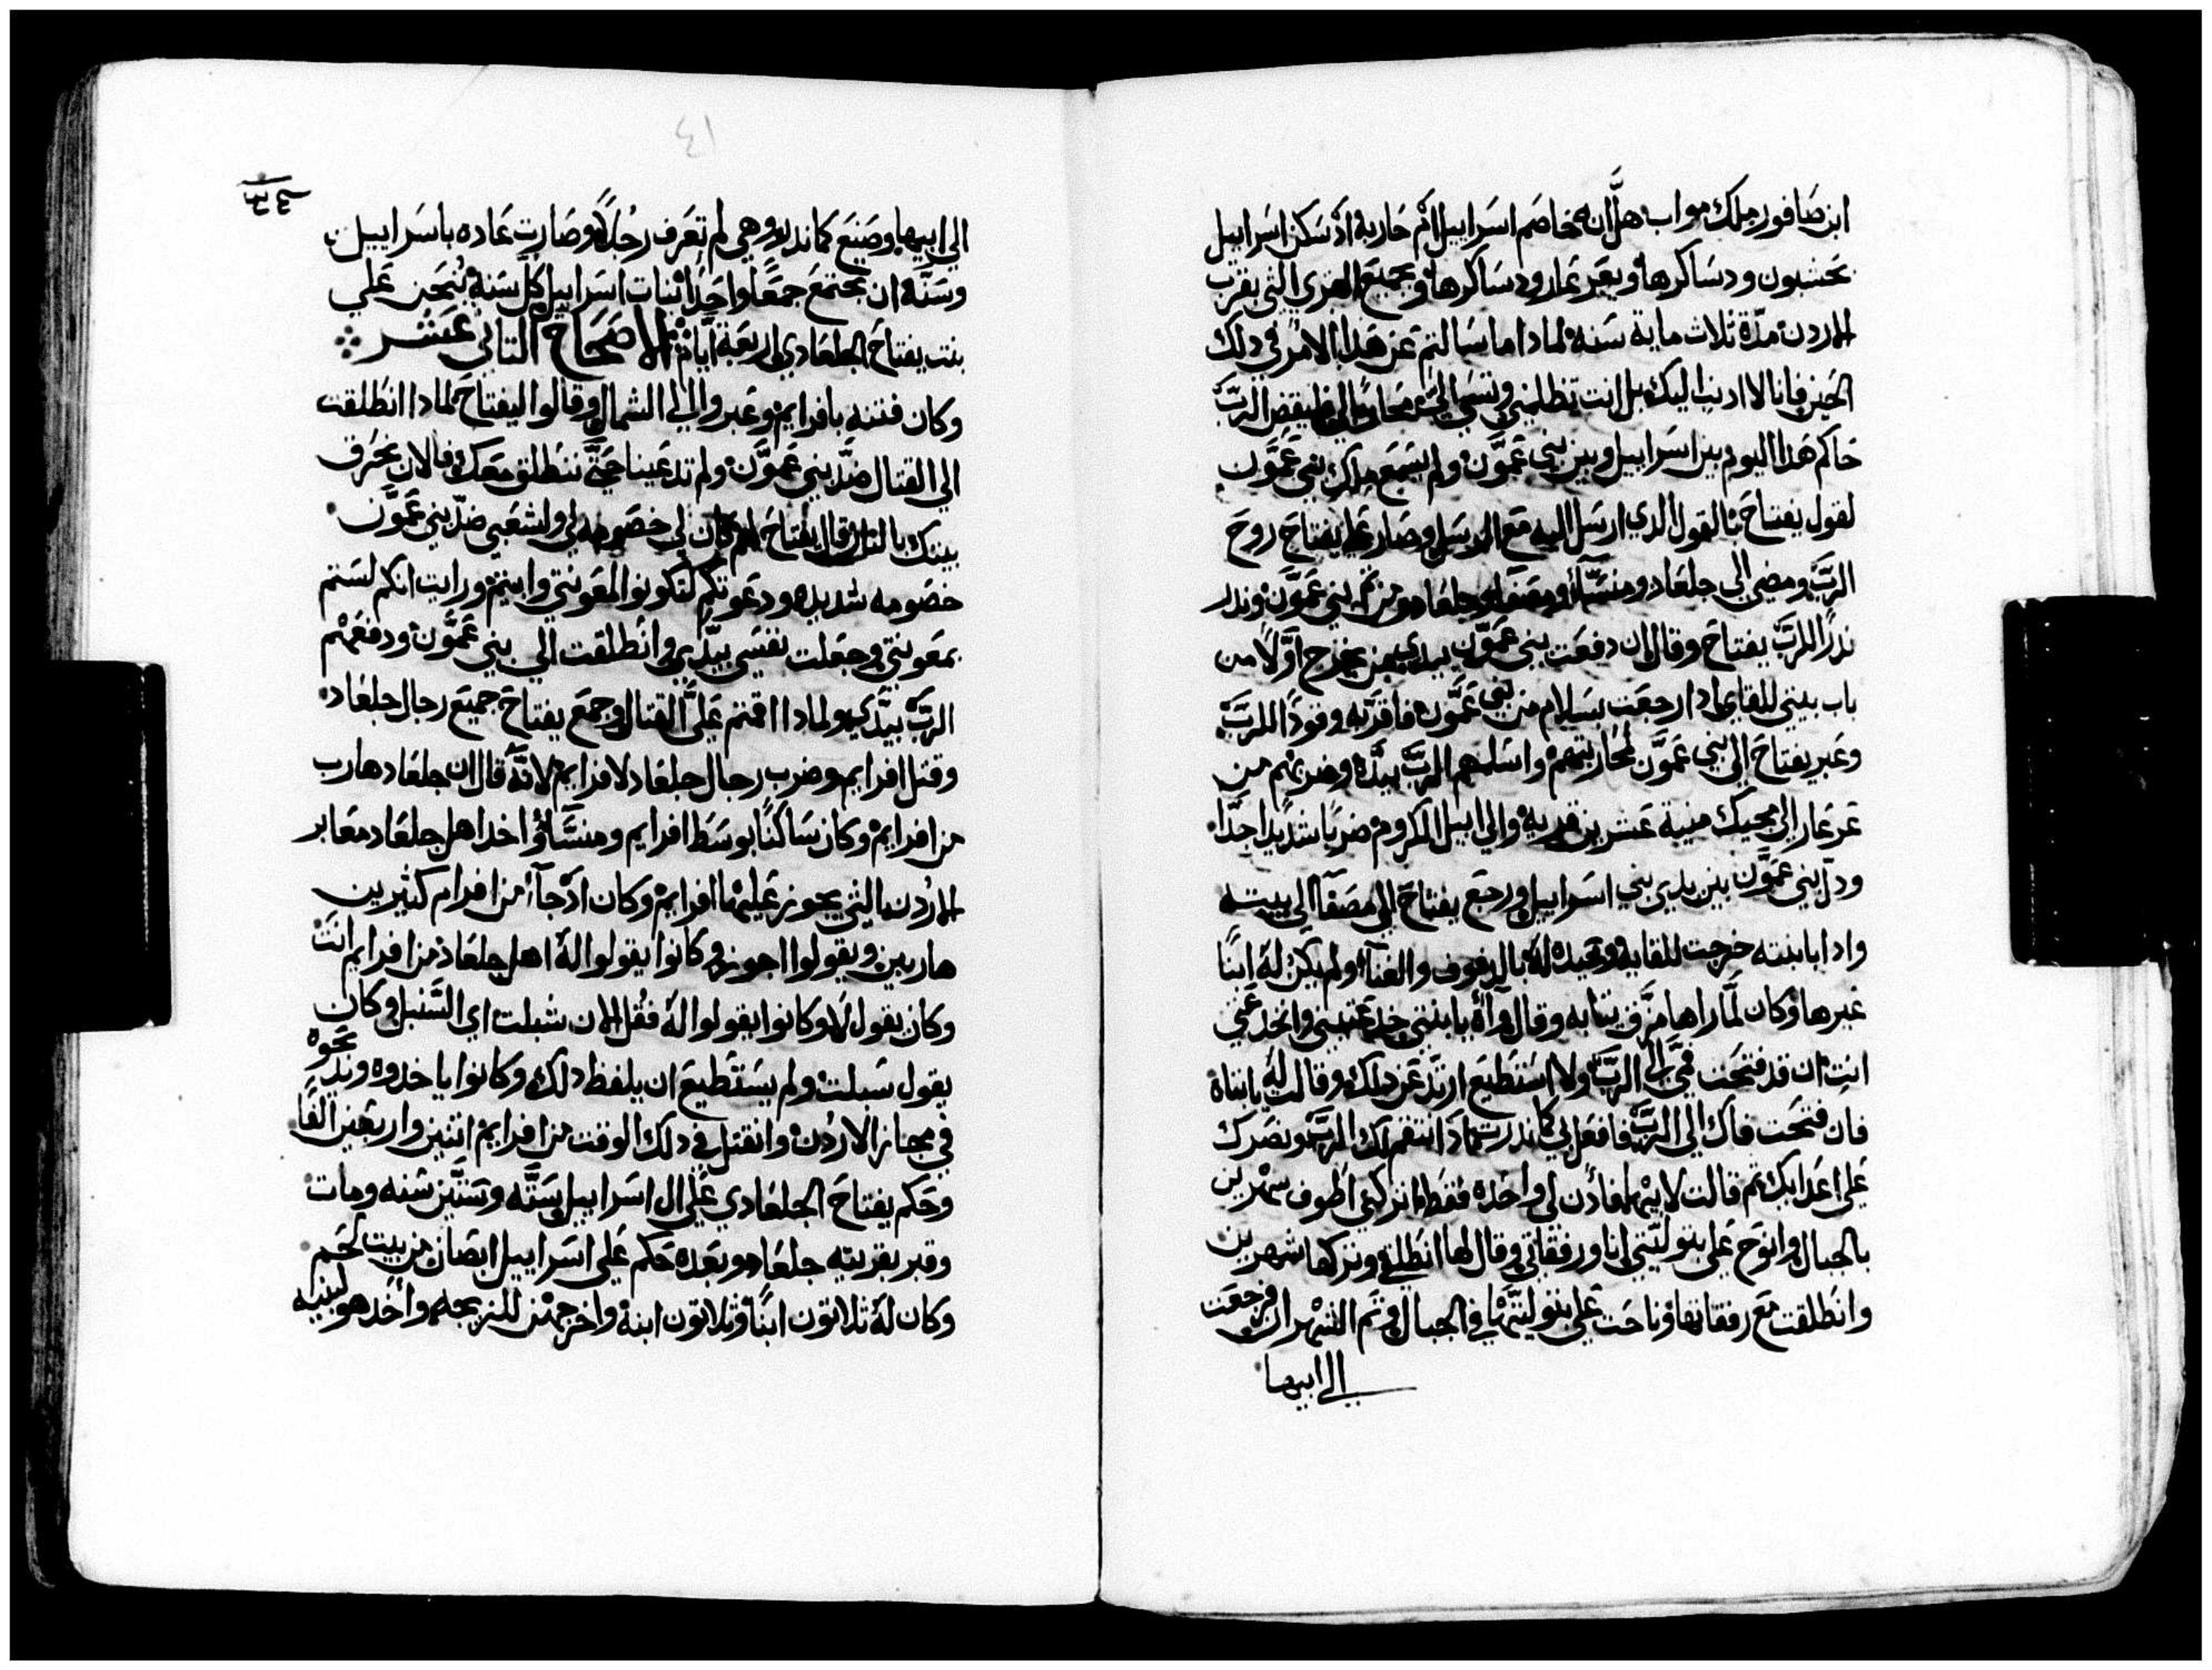 ابن صافور ملك مواب هل ان خاصم اسراييل ام حاربه اذ سكن اسراييل
بحشبون ودساكرها وبعرعار ودساكرها وبجميع القري التي بقرب
الاردن مدّة ثلاث ماية سنه لمادا ما سالتم عن هدا الامر في دلك
الحين فانا لا اديت اليك بل انت تظلمني فليقض الربّ
حاكم هدا اليوم بين اسراييل وبين بني عمّون ولم يسمع ملك بني عمّون
لقول يفتاح بالقول الدي ارسل اليه مع الرسل وصار علي يفتاح روح
الربّ ومضي الي جلعاد ومنسّا ومصفا جلعاد ومن ثم بني عمّون وندر
ندرًا للربّ يفتاح وقال ان دفعت بني عمّون بيدي من يخرج اوّلاً من
باب بيتي للقاي ادا رجعت بسلام من بني عمّون فاقرّبه وقودًا للربّ
وعبر يفتاح الي بني عمّون لمحاربتهم واسلمهم الربّ بيدّه وضربهم من
عرعار الي مجيك منية عشرين قريه والي ابيل الكروم ضربًا شديدًا جدّا
ودل بني عمّون بين يدي بني اسراييل ورجع يفتاح الي مصفا الي بيته
وادا بابنته خرجت للقايه له بالدفوف والغنآ ولم يكن له ابنًا
غيرها وكان لمّا راها مزّق ثيابه وقال اه يا بنتي خدعتيني وانخدعتي
انتِ ان قد فتحت فمي الي الربّ ولا استطيع ارتد عن دلك وقالت له يا ابتاه
فان فتحت فاك الي الربّ فافعل بي كما ندرت انتقم لك الربّ ونصرك
علي اعدايك ثم قالت لابيها فادن لي واحده فقط اتركني اطوف شهرين
بالجبال وانوح علي بتوليّتي انا ورفقاتي وقال لها انطلقي وتركها شهرين
وانطلقت مع رفقاتها وناحت علي بتوليّتها في الجبال وتم الشهران فرجعت
الي ابيها
٤١
٣٤
الي ابيها وصنع كما ندر وهي لم تعرف رجلاً وصارت عاده باسراييل
وسنّه ان تجتمع جمعًا واحدًا بنات اسراييل كلّ سنه تنحن علي
بنت يفتاح الجلعادي اربعة ايّام الاصحاح التاني عشر
وكان فتنه بافرايم وعبروا الي الشمال وقالوا ليفتاح لمادا انطلقت
الي القتال ضدّ بني عمّون ولم تدعينا حتّي ننطلق معك فالان نحرق
بيتك بالنار قال يفتاح كان لي خصومه لي ولشعبي ضدّ بني عمّون
خصومه شديده ودعوتكم لتكونوا لمعونتي وابيتم ورايت انكم لستم
بمعونتي وجعلت نفسي بيدّي وانطلقت الي بني عمّون ودفعهم
الربّ بيدّي ولمادا اقمتم عليّ القتال وجمع يفتاح جميع رجال جلعاد
وقتل افرايم وضرب رجال جلعاد لافرايم لانّه قال ان جلعاد هارب
من افرايم وكان ساكنًا بوسط افرايم ومنسّا واخدا اهل جلعاد معابر
الاردن التي يجوز عليها افرايم وكان اذ جآ من افرام كثيرين
هاربين ويقولوا اجوز وكانوا يقولوا له اهل جلعاد من افرايم انت
وكان يقول لا وكانوا يقولوا له فقل الان شبلت اي السنبل وكان
يقول سبلت ولم يستطيع ان يلفظ دلك وكانوا ياخدوه ويدبحوه
في مجاز الاردن وانقتل في دلك الوقت من افرايم اتنين واربعين الفًا
وحكم يفتاح الجلعادي علي ال اسراييل ستّه وستّين سنه ومات
وقبر بقريته جلعاد وبعده حكم علي اسراييل ابصان من بيت لحم
وكان له ثلاتون ابنًا وثلاتون ابنة واخرجهن للزيجه وأخد هو لبنيه